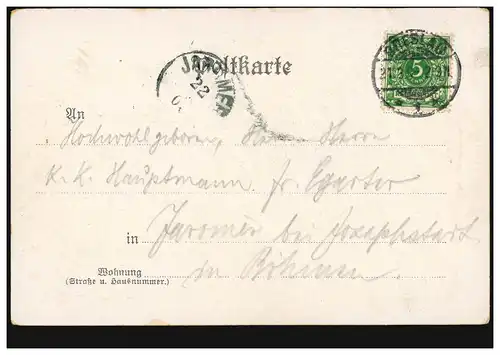 Postkarte
JAROMĚŘ
22
BRESLAU
5
1
An
Hochwohlgeboren, Herrn Herrn
K. K. Hauptmann Fr. Egarter
in Jaroměř bei Josephstadt
in Böhmen.
Wohnung
(Straße u. Hausnummer.)